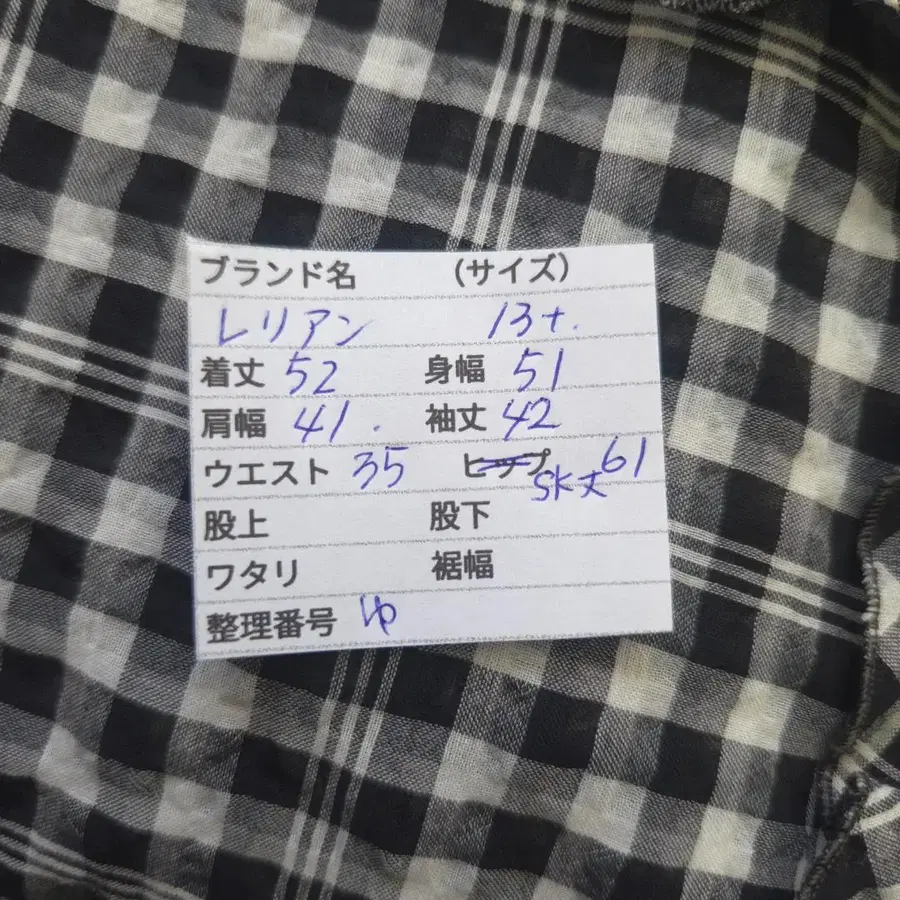 ブランド名 (サイズ)
レリアン 13+.
着丈 52 身幅 51
肩幅 41. 袖丈 42
ウエスト 35 ヒップ SK丈 61
股上 股下
ワタリ 裾幅
整理番号 ゆ